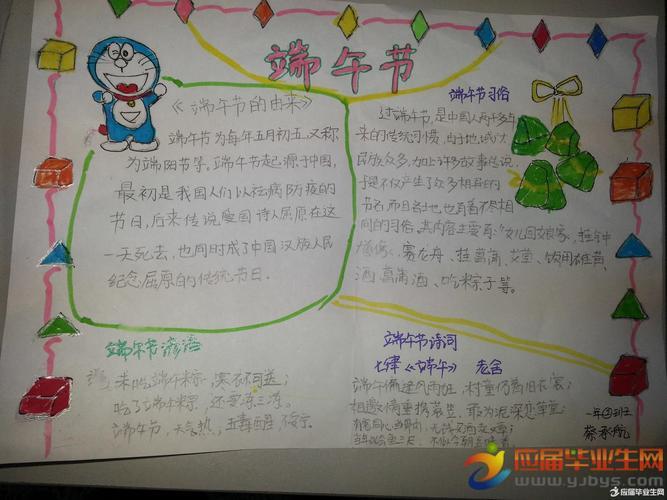 端午节
《端午节的由来》
端午节为每年五月初五,又称
为端阳节等。端午节起源于中国,
最初是我国人们以祛病防疫的
节日,后来传说爱国诗人屈原在这
一天死去,也同时成了中国汉族人民
纪念屈原的传统节日。
端午节习俗
过端午节,是中国人两千多年
来的传统习惯,由于地域广大
民族众多,加上许多故事传说
于是不仅产生了众多相异的
节名,而且各地也有着不尽相
同的习俗。其内容主要有:女儿回娘家,挂钟
馗像、赛龙舟、挂菖蒲、艾草、饮用雄黄
酒菖蒲酒、吃粽子等。
端午节谚语
未吃端午粽,寒衣不可送;
吃了端午粽,还要冻三冻。
端午节,天气热,五毒醒,不安宁。
端午节诗词
七律《端午》 老舍
端午偏逢风雨狂,村童仍着旧衣裳;
相邀情重携蓑笠,敢为泥深恋草堂;
有客同心当骨肉,无钱买酒卖文章;
一年
班
蔡承航
应届毕业生网
www.yjbys.com
应届毕业生网